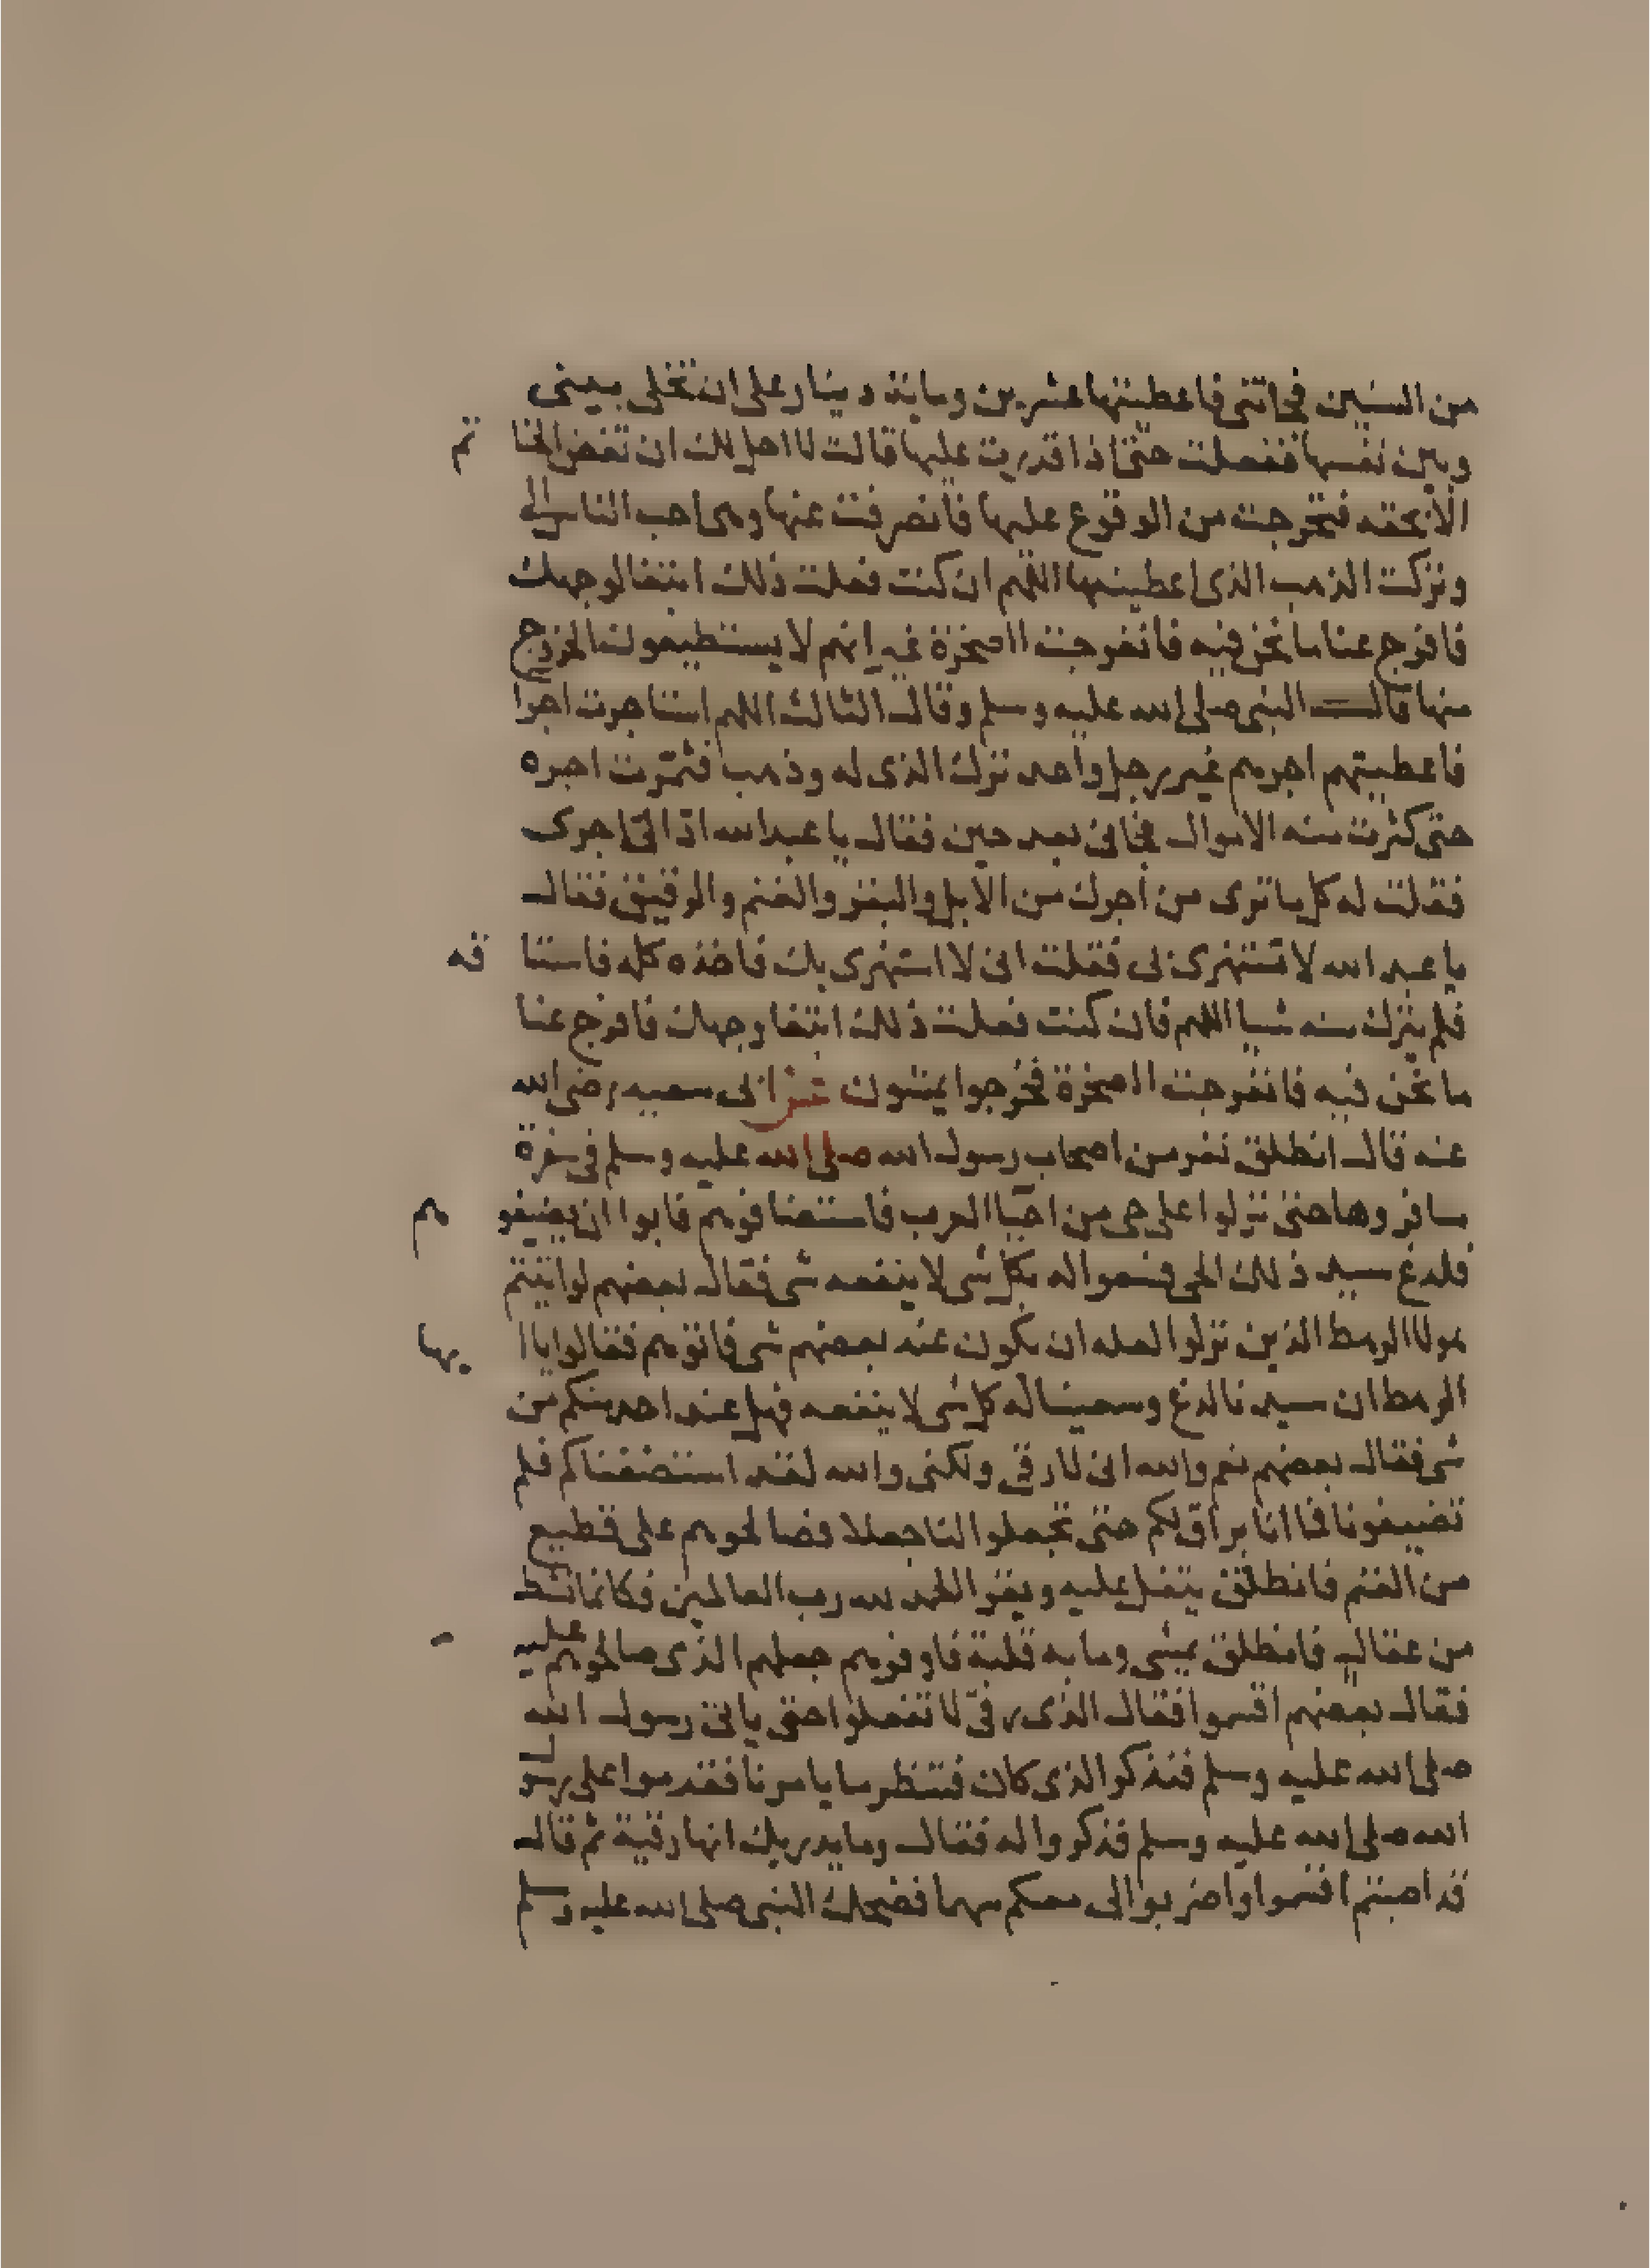 من السنين فجاتنى فاعطيتها عشرين وماية دينار على ان تخلى بينى
وبين نفسها ففعلت حتى اذا قدرت عليها قالت لا احل لك ان تفض الخا تم
الا بحقه فتحرجت من الوقوع عليها فانصرفت عنها وهى احب الناس الى
وتركت الذهب الذى اعطيتها اللهم ان كنت فعلت ذلك ابتغا لوجهك
فافرج عنا ما نحن فيه فانفرجت الصخرة غير انهم لا يستطيعون الخروج
منها قال النبى صلى الله عليه وسلم وقال الثالث اللهم استاجرت اجرا
فاعطيتهم اجرهم غير رجل واحد ترك الذى له وذهب فثمرت اجره
حتى كثرت منه الاموال فجانى بعد حين فقال يا عبد الله ادّ الىّ اجرى
فقلت له كل ما ترى من اجرك من الابل والبقر والغنم والرقيق فقال
يا عبد الله لا تستهزى بى فقلت انى لا استهزى بك فاخذه كله فاستا قه
فلم يترك منه شيا اللهم فان كنت فعلت ذلك ابتغا وجهك فافرج عنا
ما نحن فيه فانفرجت الصخرة فخرجوا يمشون عن ابى سعيد رضى الله
عنه قال انطلق نفر من اصحاب رسول الله صلى الله عليه وسلم فى سفرة
سافروها حتى نزلوا على حى من احيا العرب فاستضافوهم فابوا ان يضيفو هم
فلدغ سيد ذلك الحى فسعوا له بكل شى لا ينفعه شى فقال بعضهم لو اتيتم
هولا الرهط الذين نزلوا لعله ان يكون عند بعضهم شى فاتوهم فقالوا يا ا يها
الرهط ان سيدنا لدغ وسعينا له كل شى لا ينفعه فهل عند احد منكم من
شى فقال بعضهم نعم والله انى لارقى ولكنى والله لقد استضفناكم فلم
تضيفونا فما انا براق لكم حتى تجعلوا لنا جعلا فصالحوهم على قطيع
من الغنم فانطلق يتفل عليه ويقرا الحمد لله رب العالمين فكانما نشط
من عقال فانطلق يمشى وما به قلبة فاوفوهم جعلهم الذى صالحوهم عليه
فقال بعضهم اقسموا فقال الذى رقى لا تفعلوا حتى ياتى رسول الله
صلى الله عليه وسلم فنذكر الذى كان فننظر ما يامرنا فقدموا على رسول
الله صلى الله عليه وسلم فذكروا له فقال وما يدريك انها رقية ثم قال
قد اصبتم اقسموا واضربوا لى معكم سهما فضحك النبى صلى الله عليه وسلم